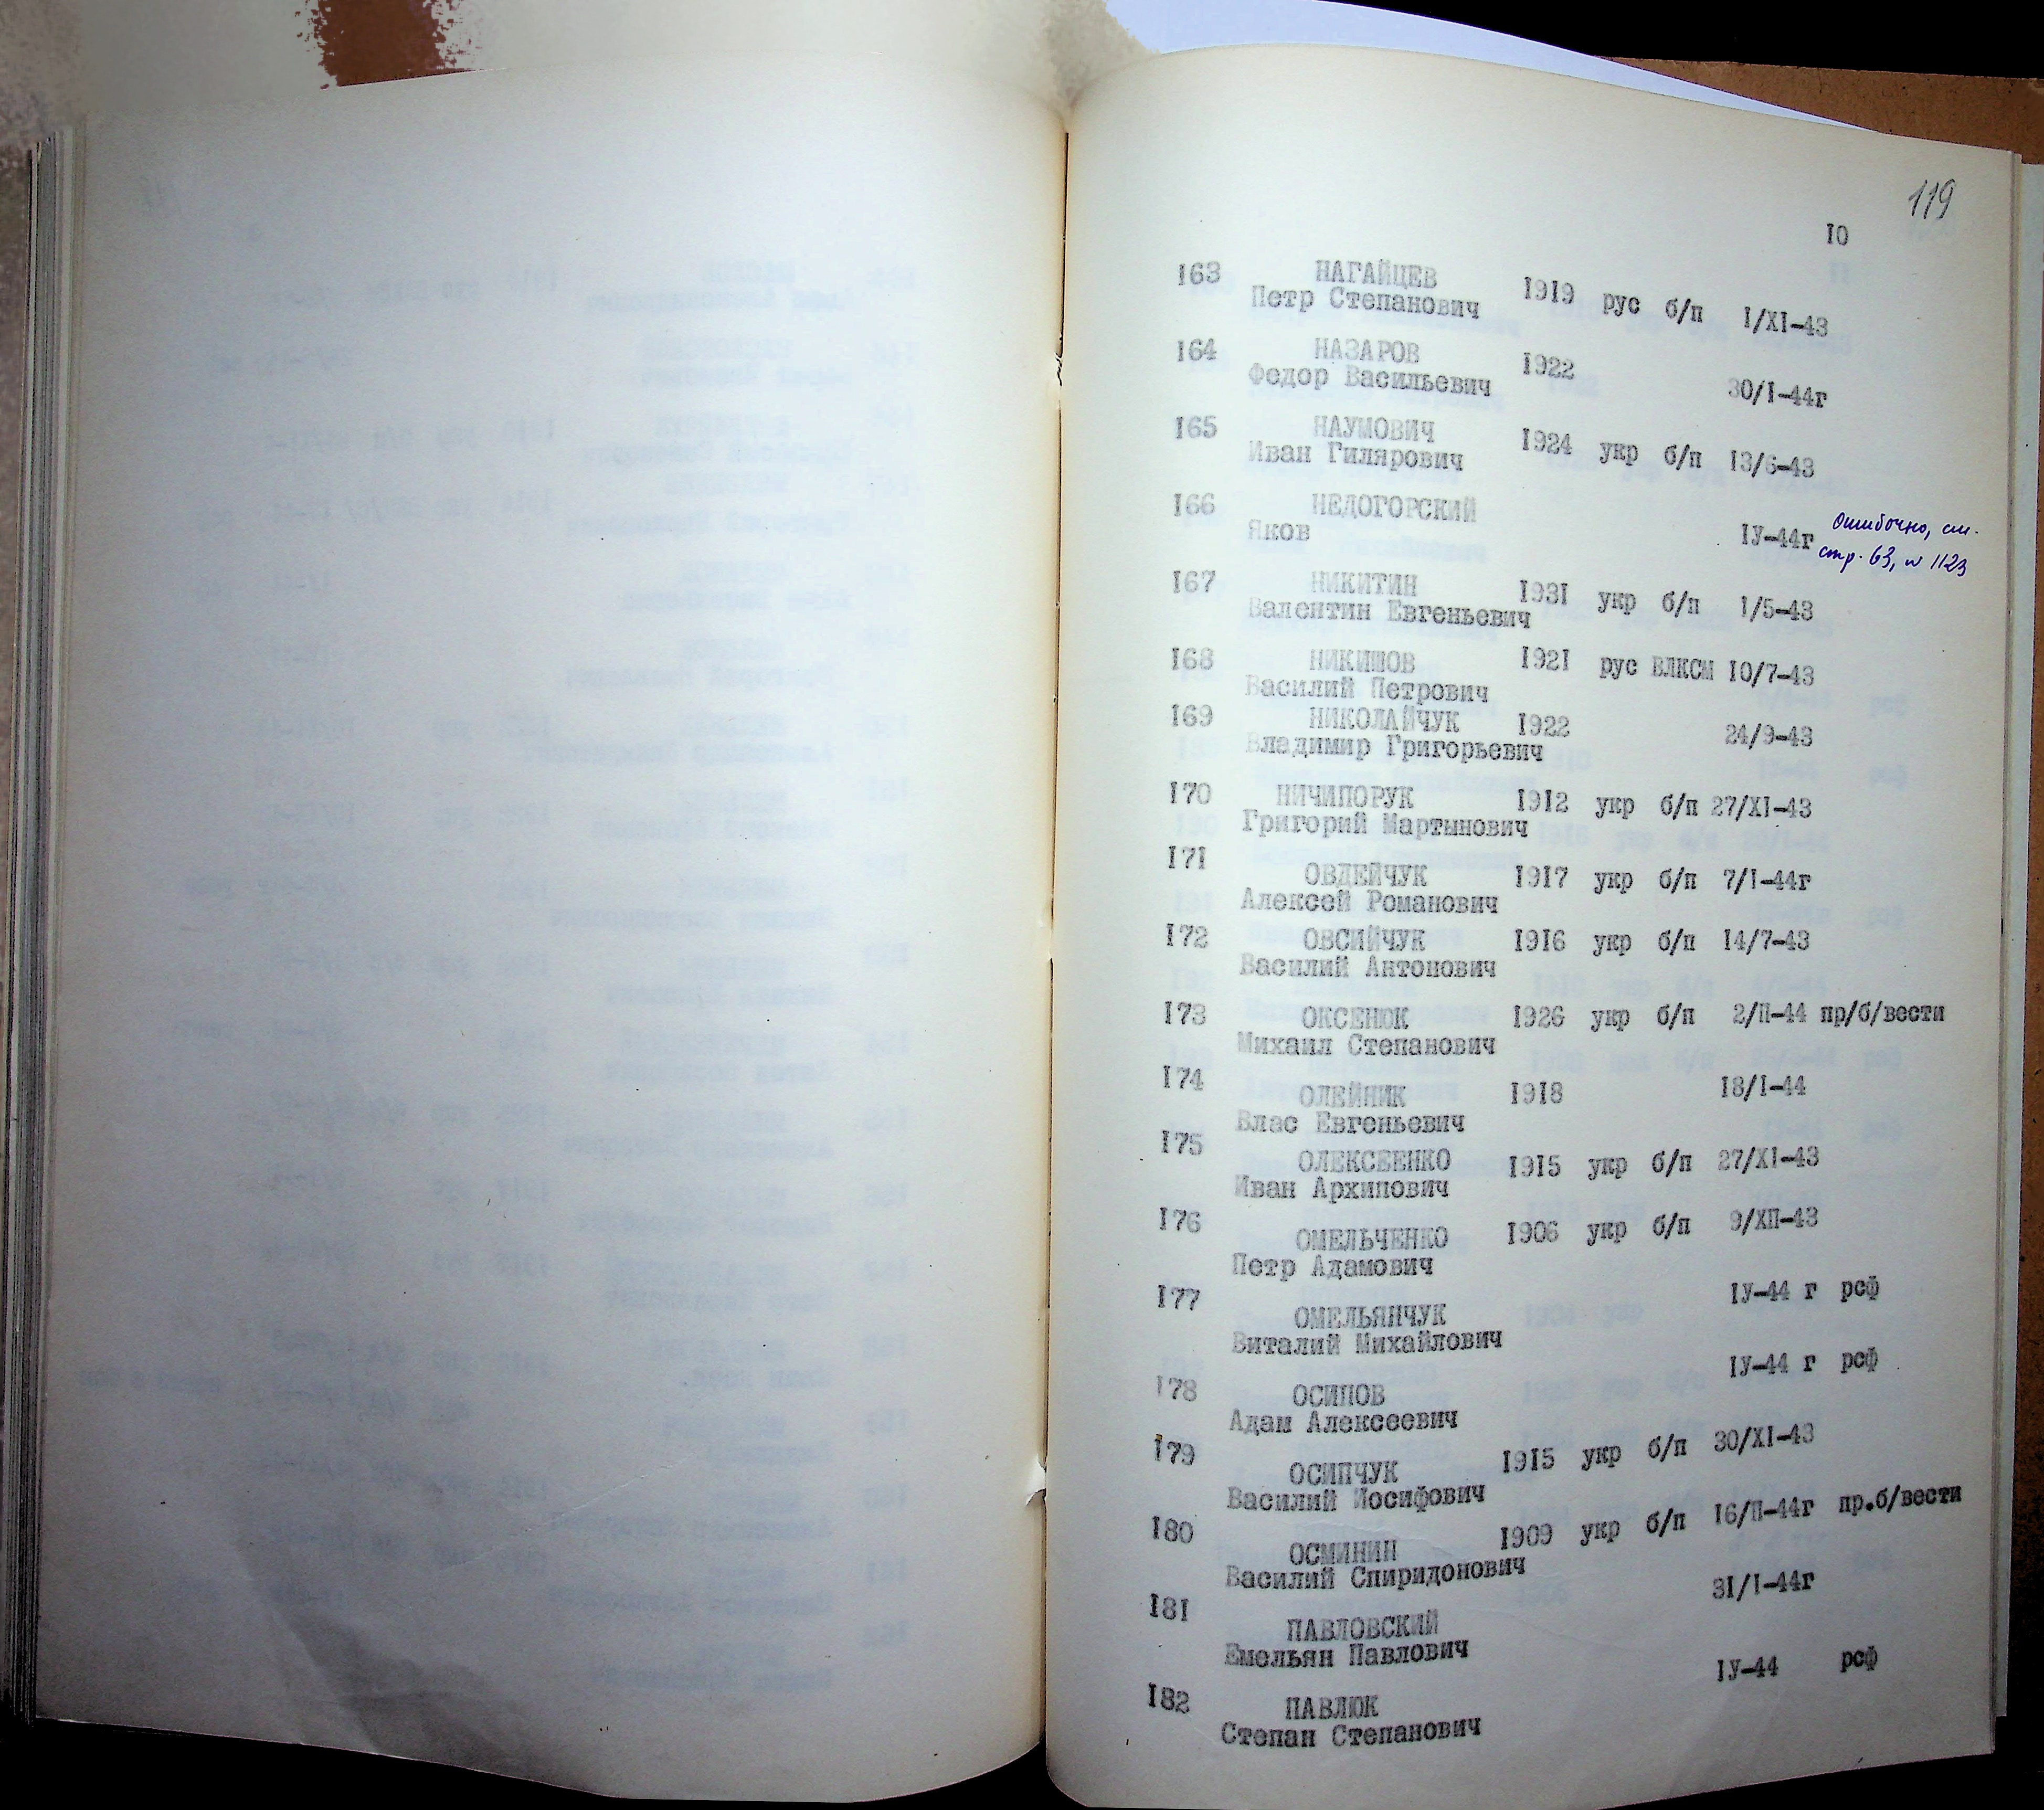 119
10
163 НАГАЙЦЕВ
Петр Степанович 1919 рус б/п I/XI-43
164 НАЗАРОВ
Федор Васильевич 1922 30/I-44г
165 НАУМОВИЧ
Иван Гилярович 1924 укр б/п 13/6-43
166 НЕДОГОРСКИЙ
Яков IУ-44г Ошибочно, см.
стр. 63, № 1123
167 НИКИТИН
Валентин Евгеньевич 1931 укр б/п 1/5-43
168 НИКИШОВ 1921 рус ВЛКСМ 10/7-43
Василий Петрович
169 НИКОЛАЙЧУК 1922 24/9-43
Владимир Григорьевич
170 НИЧИПОРУК 1912 укр б/п 27/XI-43
Григорий Мартынович
171 ОВДЕЙЧУК 1917 укр б/п 7/I-44г
Алексей Романович
172 ОВСИЙЧУК 1916 укр б/п 14/7-43
Василий Антонович
173 ОКСЕНЮК 1926 укр б/п 2/П-44 пр/б/вести
Михаил Степанович
174 ОЛЕЙНИК 1918 18/I-44
Влас Евгеньевич
175 ОЛЕКСЕЕНКО 1915 укр б/п 27/XI-43
Иван Архипович
176 ОМЕЛЬЧЕНКО 1906 укр б/п 9/ХП-43
Петр Адамович
177 ОМЕЛЬЯНЧУК IУ-44 г рсф
Виталий Михайлович
178 ОСИПОВ IУ-44 г рсф
Адам Алексеевич
179 ОСИПЧУК 1915 укр б/п 30/XI-43
Василий Иосифович
180 ОСМИНИН 1909 укр б/п 16/П-44г пр.б/вести
Василий Спиридонович
181 ПАВЛОВСКИЙ 31/I-44г
Емельян Павлович
182 ПАВЛЮК IУ-44 рсф
Степан Степанович